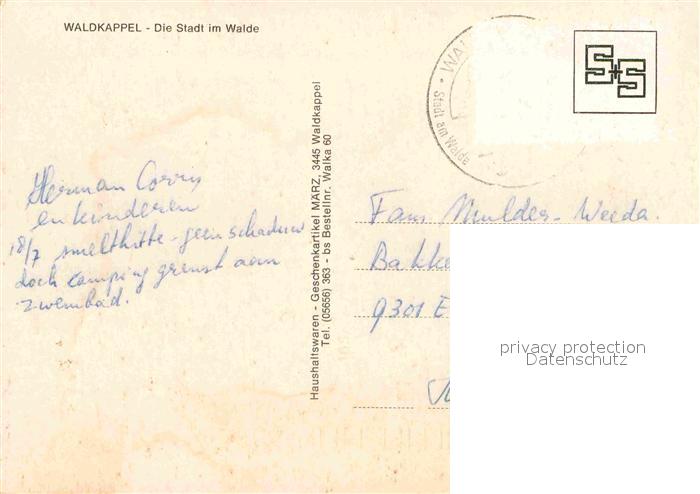 WALDKAPPEL - Die Stadt im Walde
S+S
WAL
Stadt am Walde
Haushaltswaren - Geschenkartikel MÄRZ, 3445 Waldkappel
Tel. (05656) 363 - bs Bestellnr. Walka 60
Herman Corry
en kinderen
18/7 smelthitte - geen schaduw
doch camping grenst aan
zwembad.
Fam Mulder-Weeda.
Bakke
9301 E
privacy protection
Datenschutz